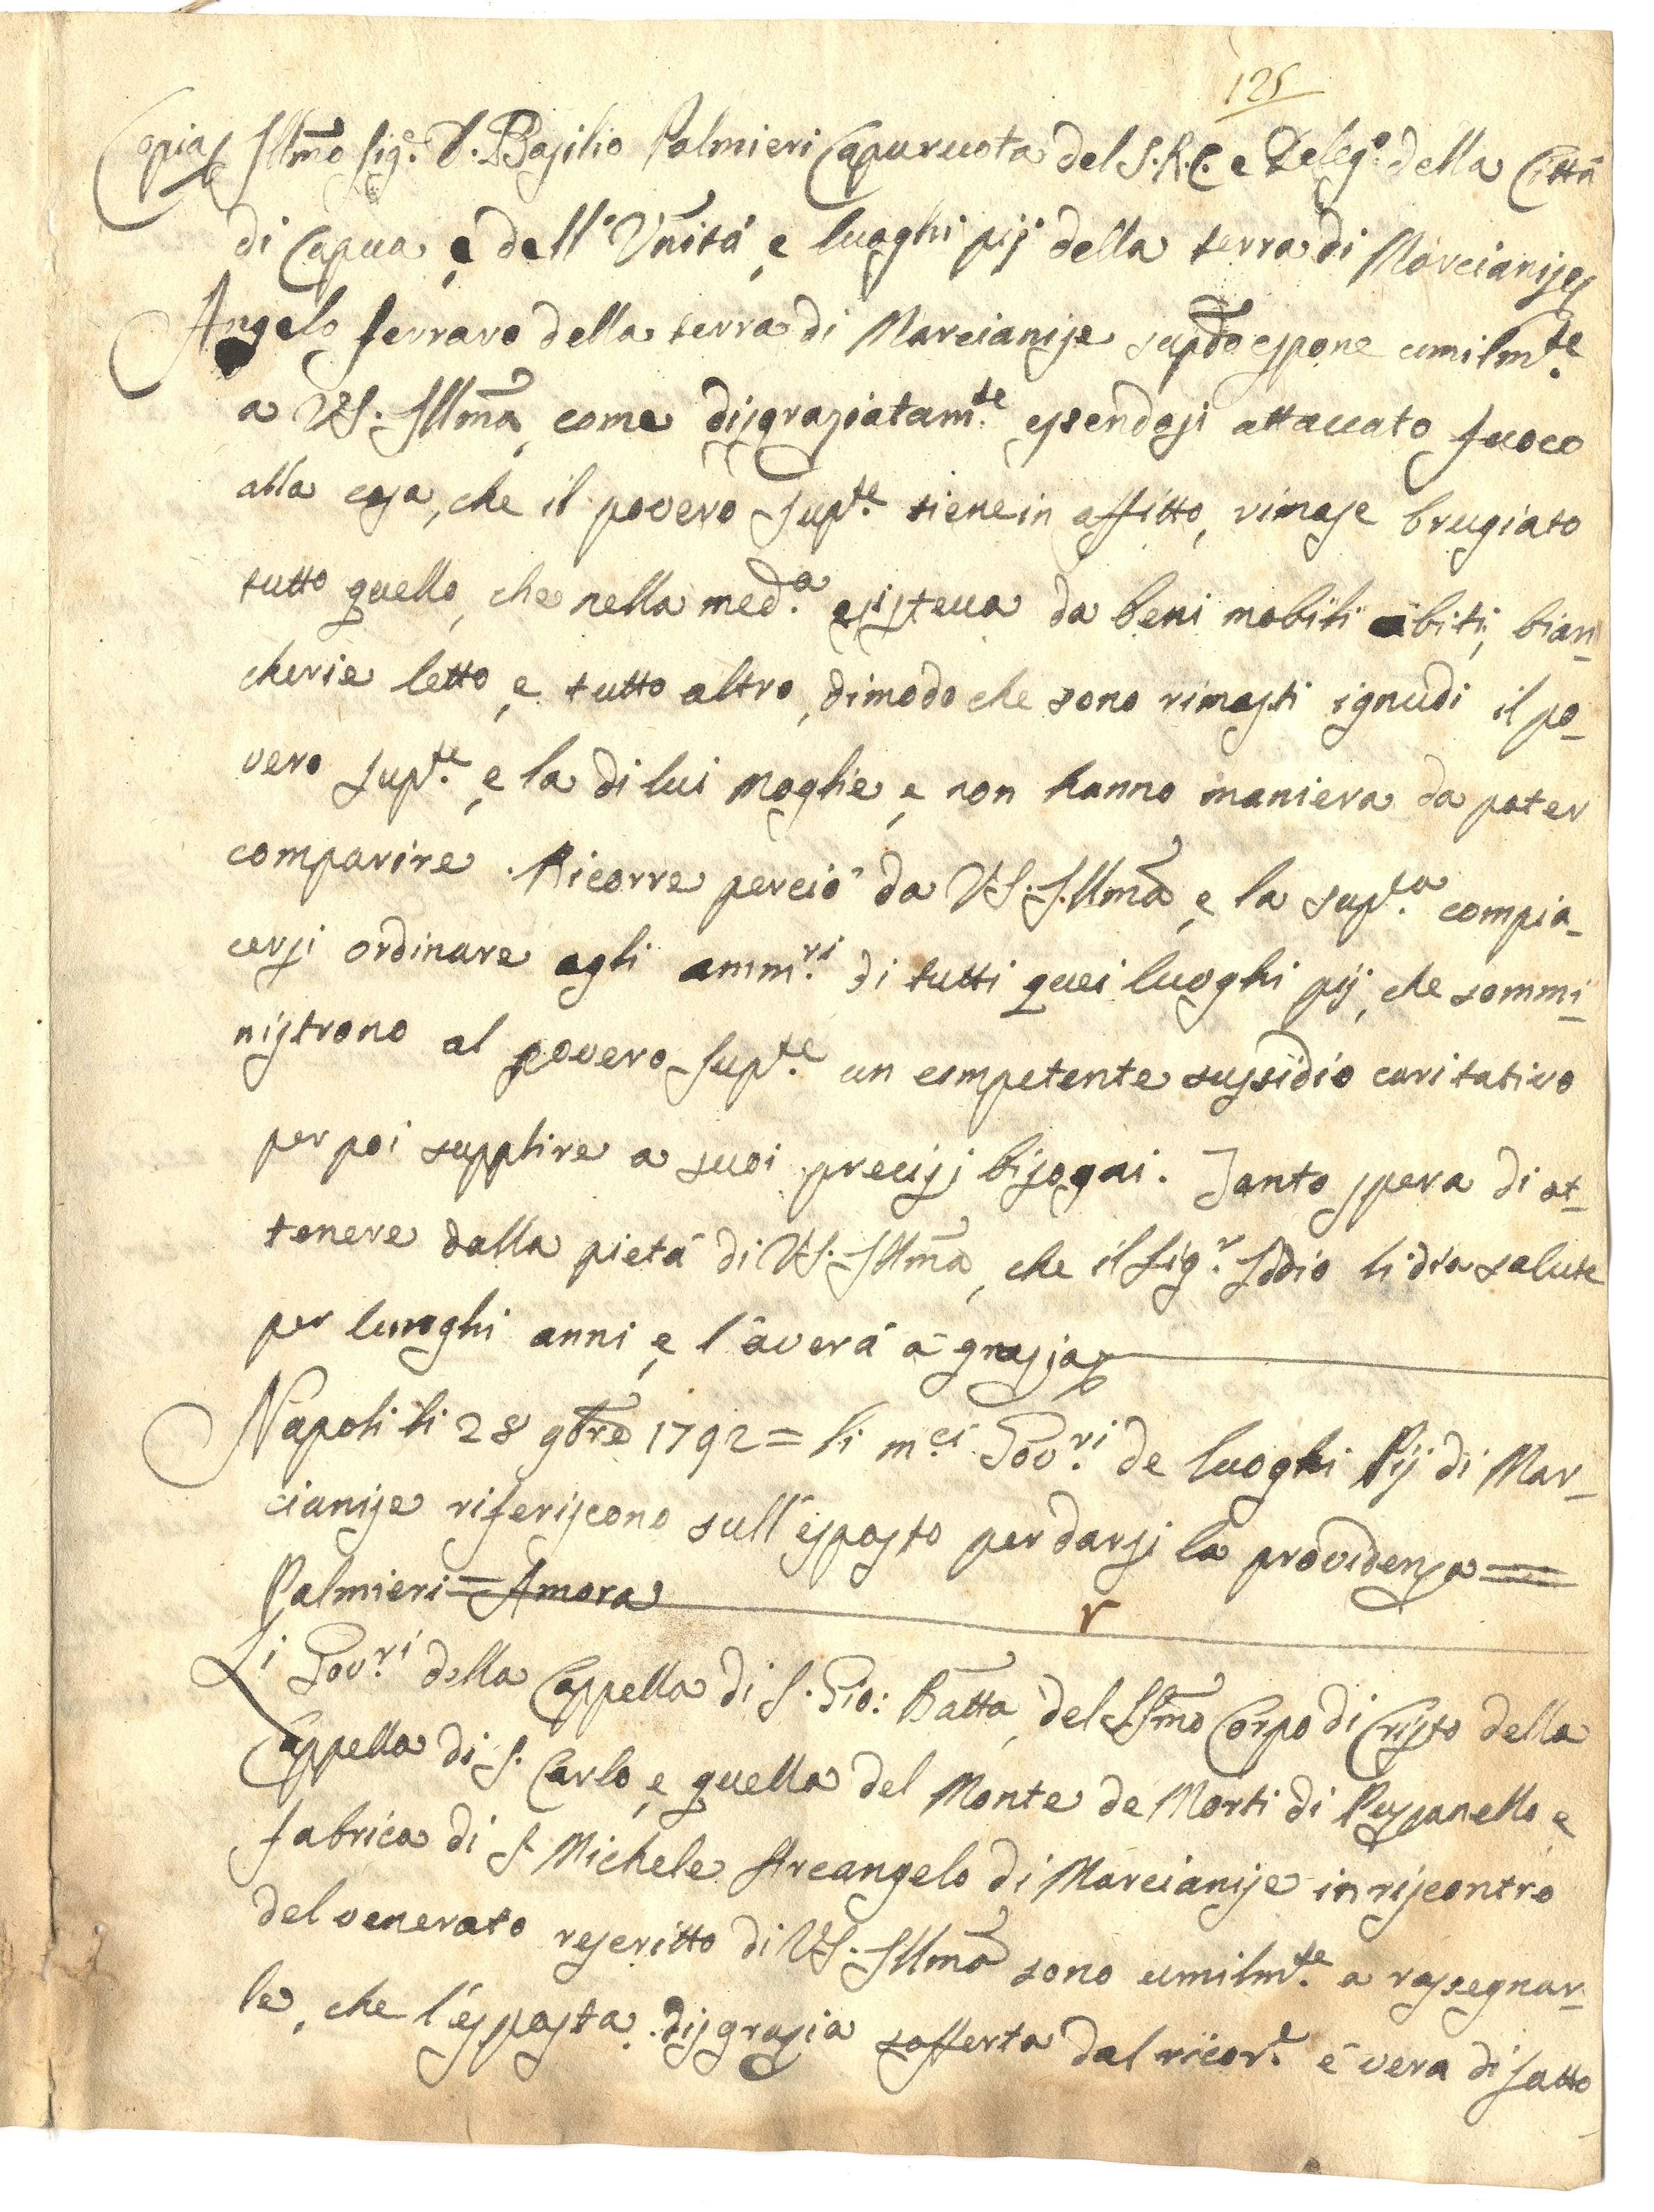 125
Copia Ill̃mo Sig.e D. Basilio Palmieri Capuruota del S.R.C. e Deleg.o della Città
di Capua, e dell'Vñità, e luoghi pij della terra di Marcianise
Angelo ferraro della terra di Marcianise sup̃do espone umilm.te
a VS. Ill̃ma, come disgraziatam.te essendosi attaccato fuoco
alla casa, che il povero Sup.te tiene in affitto, rimase brugiato
tutto quello, che nella med.a esisteva da beni mobili abiti, bian_
cherie letto, e tutto altro, dimodo che sono rimasti ignudi il po_
vero Sup.te, e la di lui moglie, e non hanno maniera da poter
comparire. Ricorre perciò da VS. Ill̃ma, e la sup.ca compia_
cersi ordinare agli amm.ri di tutti quei luoghi pij, che sommi_
nistrono al povero Sup.te un competente sussidio caritativo
per poi supplire a suoi precisi bisogni. Tanto spera di ot_
tenere dalla pietà di VS. Ill̃ma, che il Sig.r Iddio li dia salute
per lunghi anni, e l'averà à grazia
Napoli li 28 9b̃re 1792 = li m.ci Gov.ri de luoghi Pij di Mar_
cianise riferiscono sull'esposto per darsi la providenza =
Palmieri = Amora
Li Gov.ri della Cappella di S. Gio: Bãtta, del SS̃mo Corpo di Cristo della
Cappella di S. Carlo, e quella del Monte de Morti di Puzzanello e
fabrica di S. Michele Arcangelo di Marcianise in riscontro
del venerato rescritto di VS. Ill̃ma sono umilm.te a rassegnar_
le, che l'esposta disgrazia sofferta dal ricor.e è vera di fatto